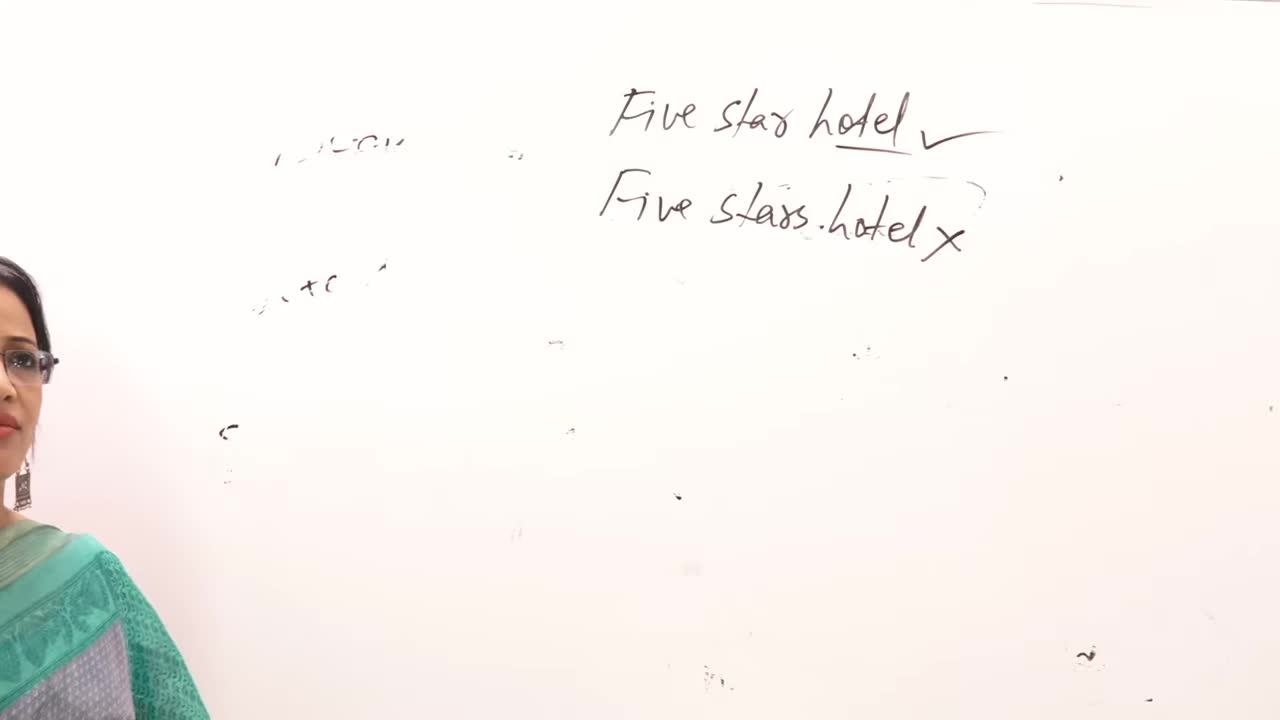 Five star hotel ✓
Five stars.hotel ×